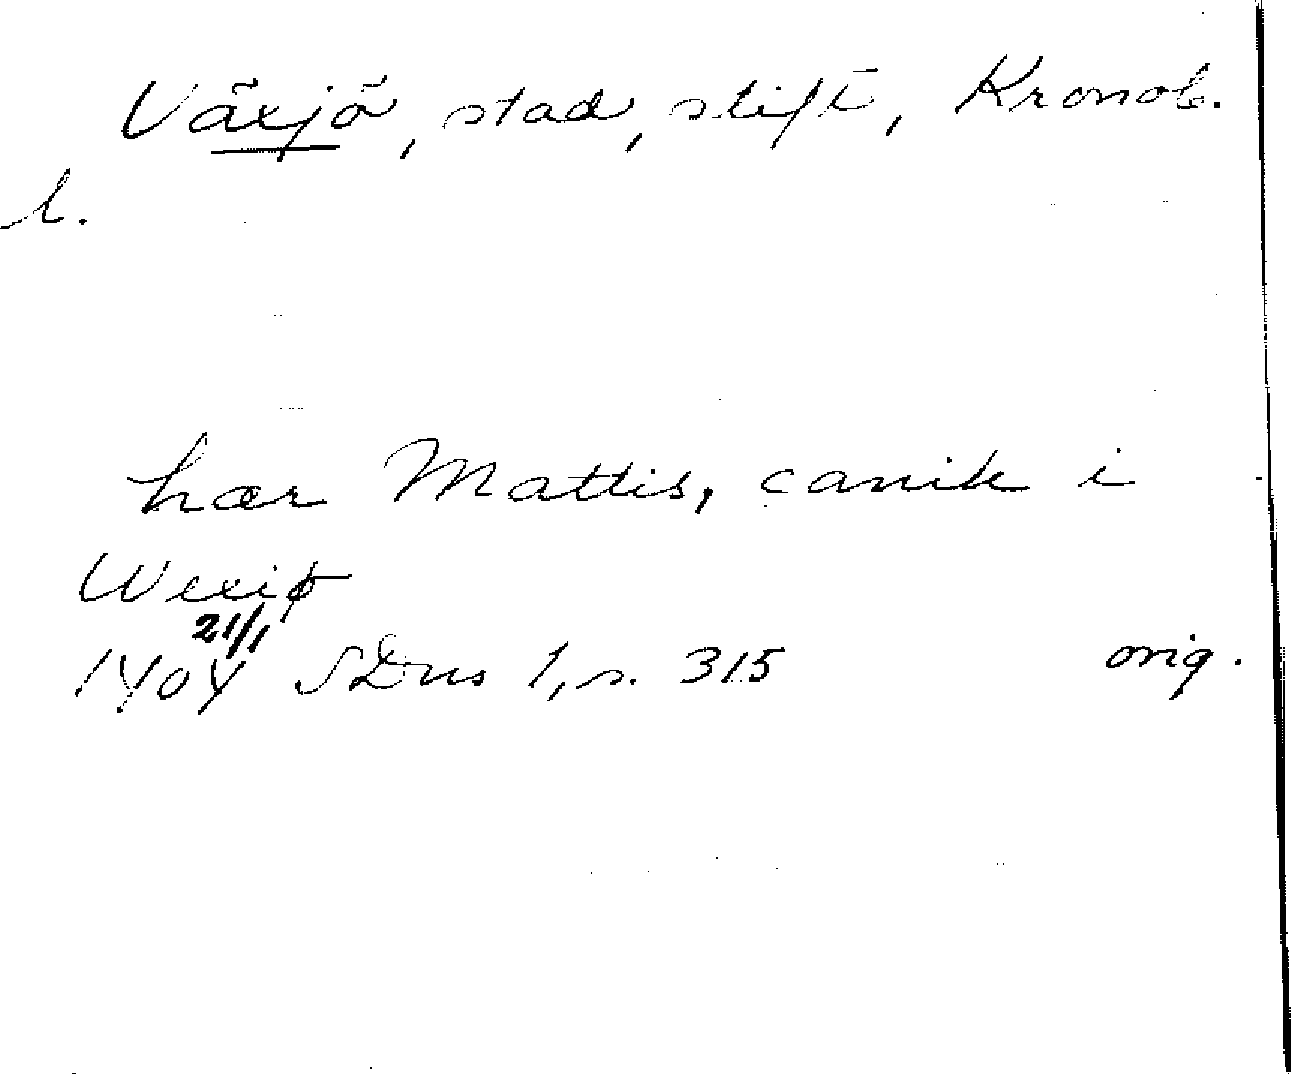 Växjö, stad, stift, Kronob.
l.
hær Mattis, canik i
Wexiø
21/1
1404 SDns 1, s. 315 orig.